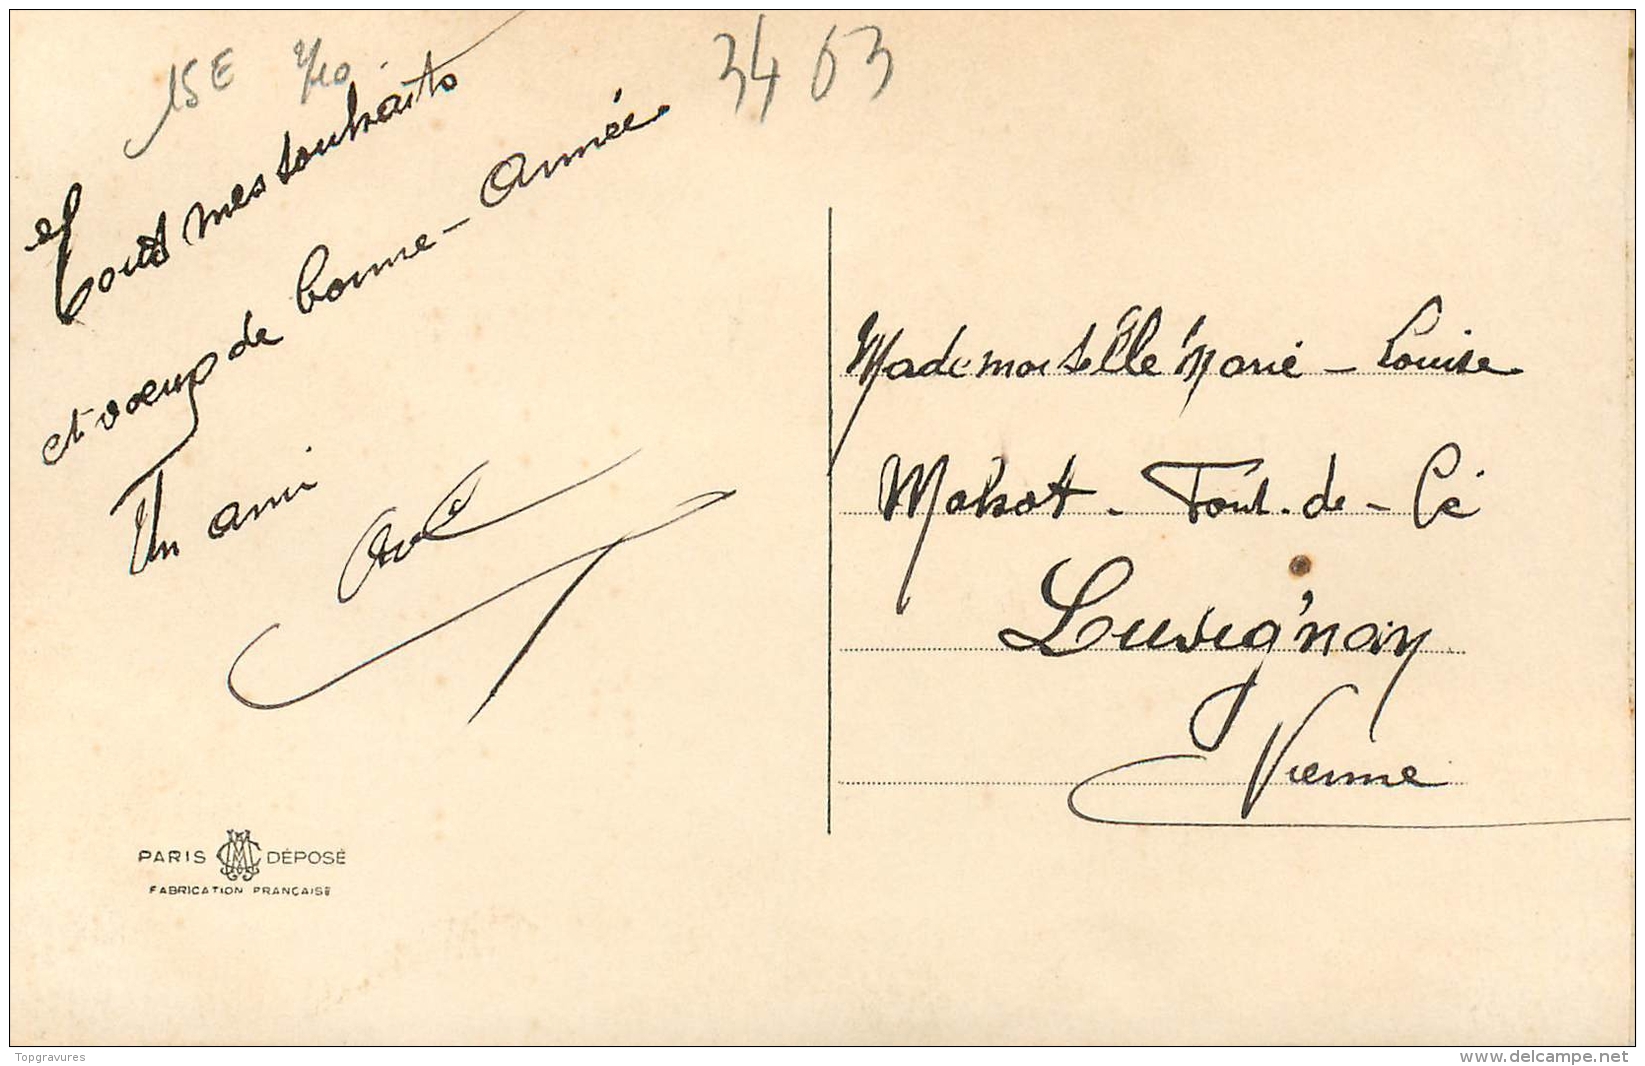 15E 7/10
3463
Tous mes souhaits
et voeux de bonne-Année
Un ami
Mademoiselle Marie-Louise
Mahot. Pont-de-Cé
Lusignan
Vienne
PARIS DÉPOSÉ
FABRICATION FRANÇAISE
Topgravures
www.delcampe.net